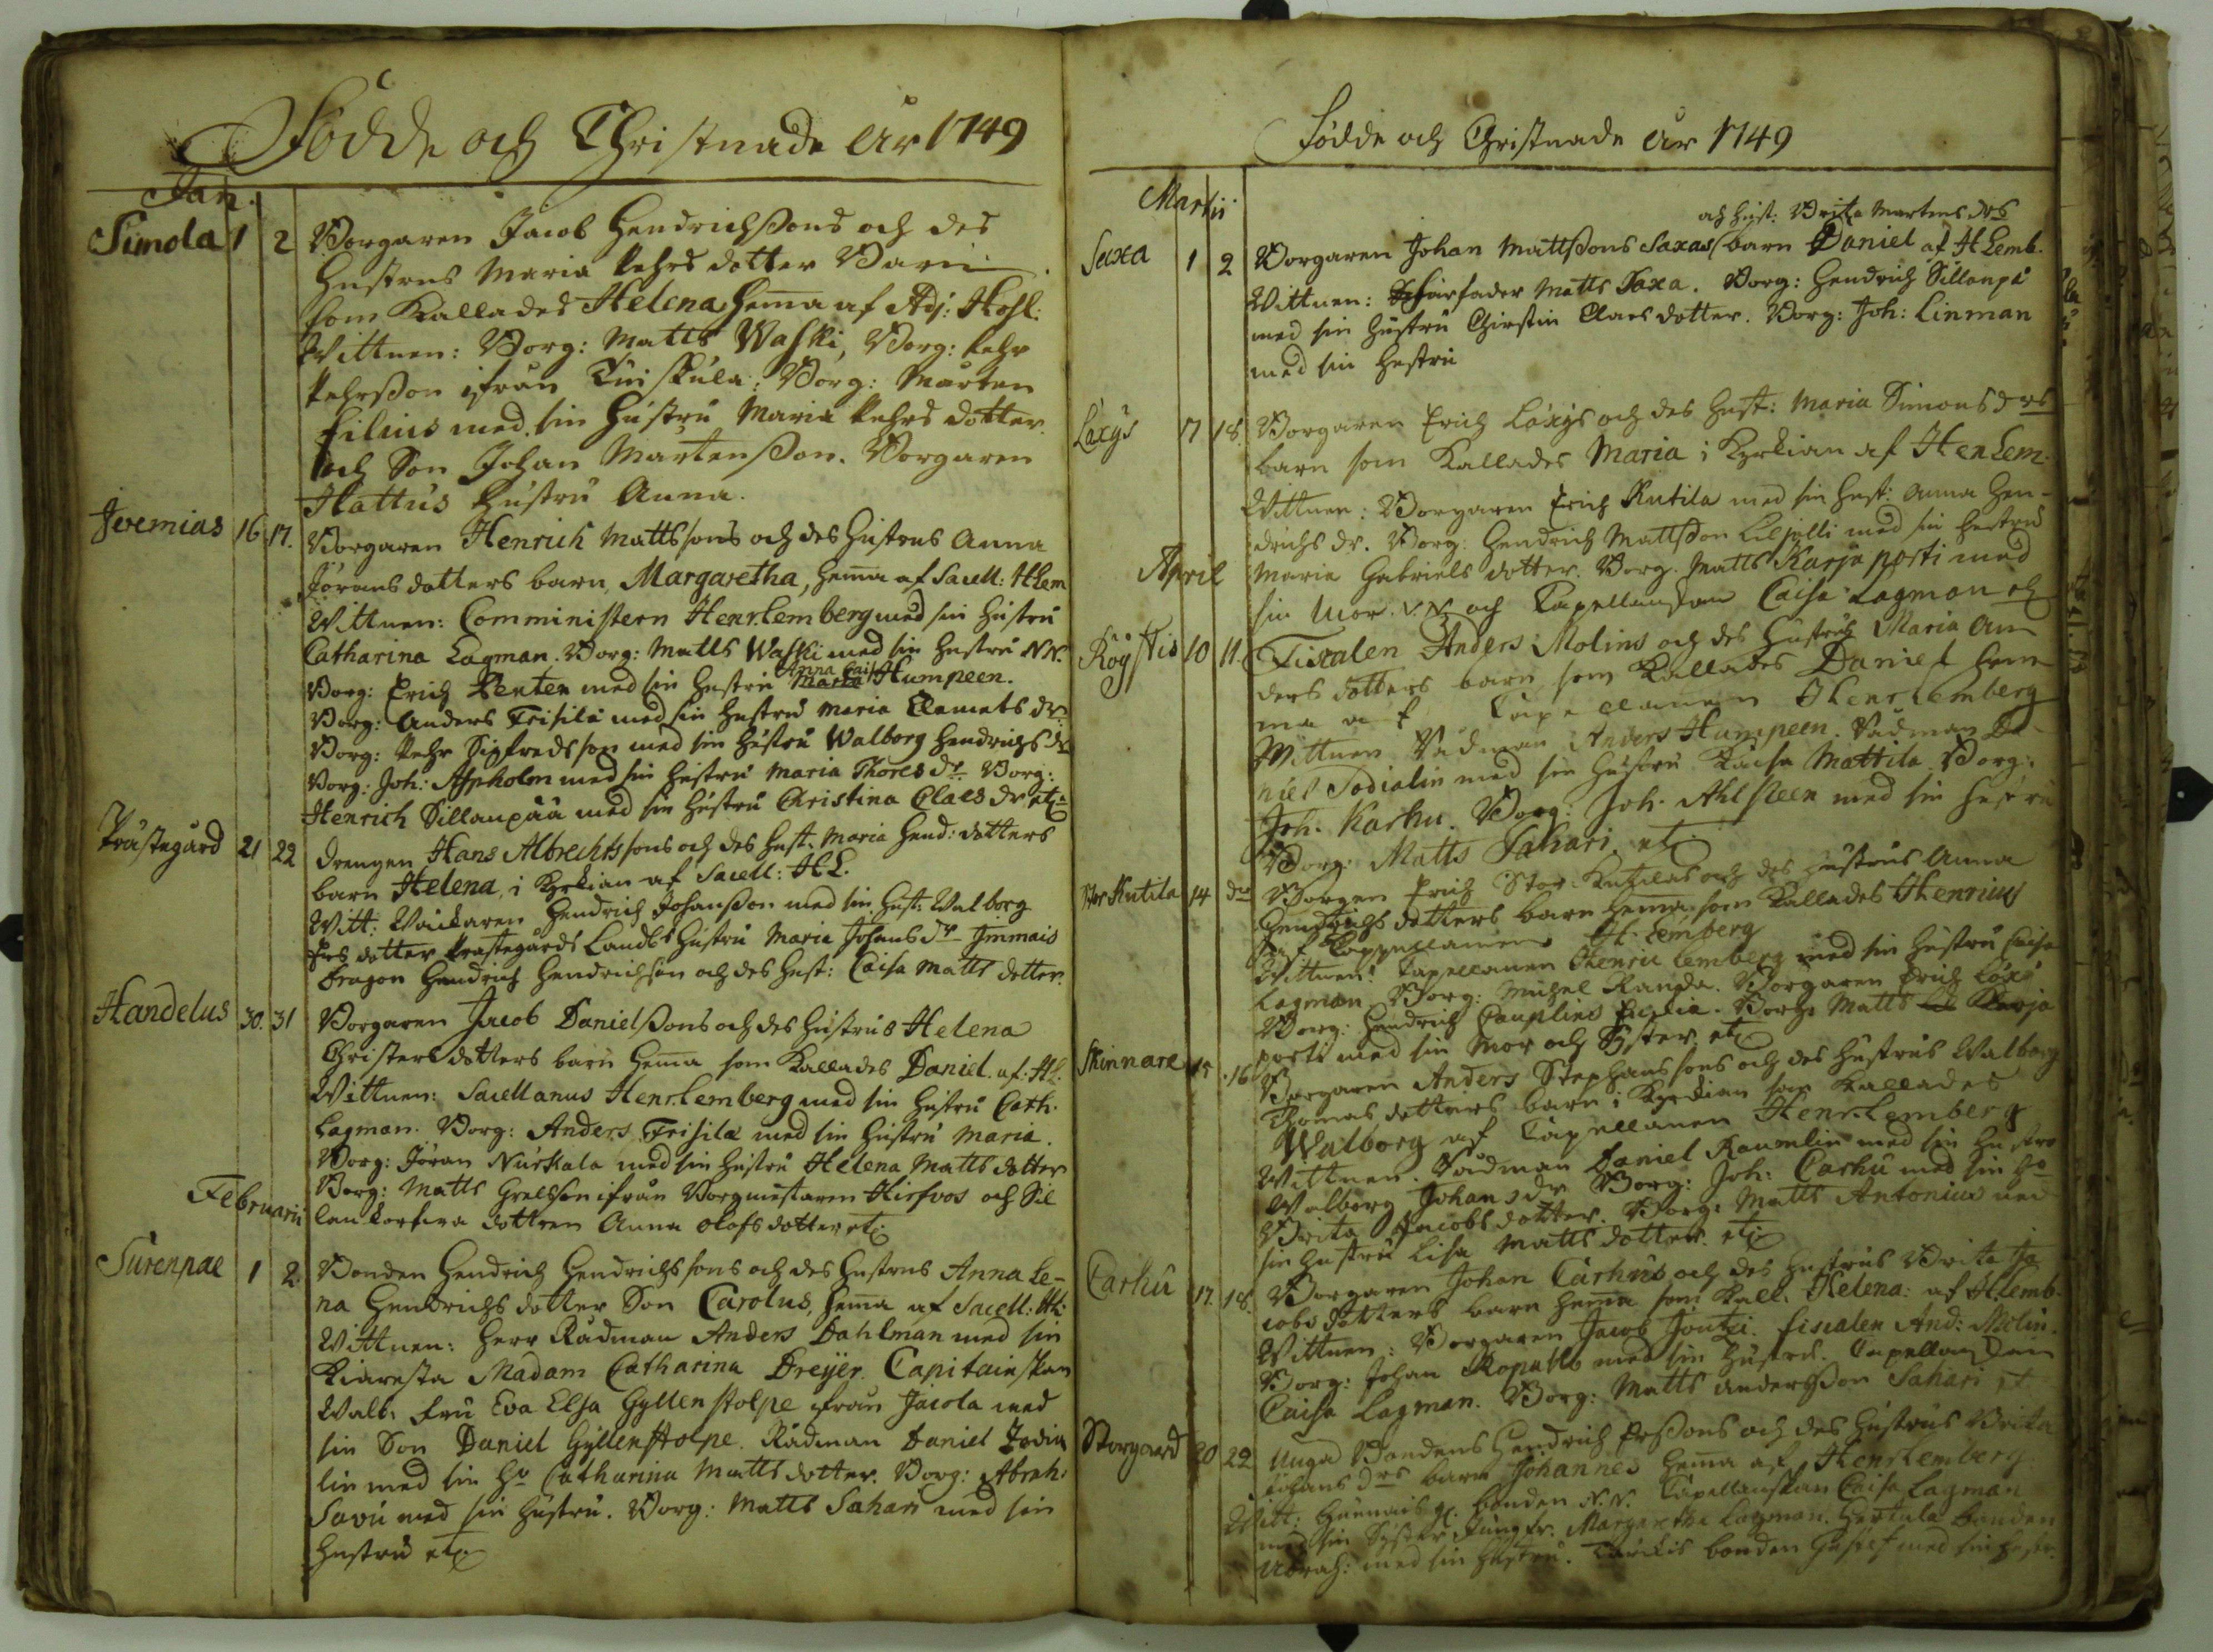 Födde och Christnade år 1749
Jan.
Simola 1 2 Borgaren Jacob Hendrichssons och des
hustrus Maria Pehrs dotter Barn
som kallades Helena hema af Adj: Hosl:
Wittnen: Borg: Matts Waski, Borg: Pehr
Pehrsson ifrån Tuiskula: Borg: Mårten
Filius med sin hustru Maria Pehrs dotter
och Son Johan Mårtensson. Borgaren
Hattus hustru Anna.
Jeremias 16 17. Borgaren Henrich Mattssons och des hustrus Anna
Jörans dotters barn, Margaretha, hema af Sacell: HLem
Wittnen: Comministern Henr. Lemberg med sin hustru
Catharina Lagman. Borg: Matts Waski med sin hustru NN.
Borg: Erich Penten med sin hustru Anna Caisa Humpeen.
Borg: Anders Frisila med sin hustru Maria Clemets dr.
Borg: Pehr Sigfredsson med sin hustru Walborg Hendrichs dr
Borg: Joh: Aspholm med sin hustru Maria Thores dr. Borg:
Henrich Sillanpää med sin hustru Christina Claes dr etc
Prästegård 21 22 Drengen Hans Albrechtssons och des hust. Maria Hend: dotters
barn Helena, i Kyrkian af Sacell: HL.
Witt: Hendrich Johansson med sin hust: Walborg
Ers dotter Prästegårds Landbs hustru Maria Johans dr Immais
Dragon Hendrich Hendrichson och des hust: Caisa Matts dotter.
Handelus 30. 31 Borgaren Jacob Danielssons och des hustrus Helena
Christers dotters barn hema som kallades Daniel. af: HL:
Wittnen: Sacellanus Henr. Lemberg med sin hustru Cath.
Lagman. Borg: Anders Frisila med sin hustru Maria.
Borg: Jöran Nurkala med sin hustru Helena Matts dotter
Borg: Matts Grelsson ifrån Borgmestaren Hirfvos och Sil
Februarii
lankorfva dottren Anna Olofs dotter etc
Surenpae 1 2. Bonden Hendrich Hendrichssons och des hustrus Anna Le-
na Hendrichs dotter Son Carolus, hema af Sacell: HL:
Wittnen: Herr Rådman Anders Dahlman med sin
Kiäresta Madam Catharina Dreijer. Capitainskan
Walb: fru Eva Elsa Gyllenstolpe ifrån Jacola med
sin Son Daniel Gyllenstolpe. Rådman Daniel Sodia
lin med sin ho Catharina Matts dotter. Borg: Abrah:
Savu med sin hustru. Borg: Matts Sahari med sin
hustru etc
Födde och Christnade år 1749
Martii
och hust: Brita Mårtens drs
Saxa 1 2 Borgaren Johan Mattssons Saxas barn Daniel af HLemb.
Wittnen: Farfader Matts Saxa. Borg: Hendrich Sillanpä
med sin hustru Chirstin Claes dotter. Borg: Joh: Linman
med sin hustru
Laxys 17 18. Borgaren Erich Laxys och des hust: Maria Simons drs
barn som kallades Maria i Kyrkian af Hen Lem.
Wittnen: Borgaren Erich Kutila med sin hust: Anna Hen-
drichs dr. Borg: Hendrich Mattsson med sin hustru
April
Maria Gabriels dotter. Borg. Matts Karjaporti med
sin Mor N.N. och Capellanskan Caisa Lagman etc
Röysttis 10 11. Fiscalen Anders Molins och des hustrus Maria An
ders dotters barn som kallades Daniel hem
ma af Capellanen Henr Lemberg
Wittnen Rådman Anders Humpeen. Rådman Da-
niel Sodialin med sin hustru Kaisa Mattila. Borg:
Joh. Karhu. Borg: Joh. Ahlsteen med sin hustru
Borg: Matts Sahari. etc
Stor Kutila 14 dr Borgen Erich Stor Kutilas och des hustrus Anna
Hendrichs dotters barn hema som kallades Henricus
af Cappellanen H. Lemberg
Wittnen: Capellanen Henric Lemberg med sin hustru Caisa
Lagman. Borg: Michel Randa. Borgaren Erich Laxs
Borg: Hendrich Cauplins. Borg: Matts Karja
porti med sin Mor och Syster. etc
Skinnare 15 16 Borgaren Anders Stephanssons och des hustrus Walborg
Thomas dotters barn i Kyrkian som kallades
Walborg af Capellanen Henr. Lemberg
Wittnen. Rådman Daniel Raumlin med sin hustru
Walborg Johans dr. Borg: Joh: Carhu med sin ho
Brita Jacobs dotter. Borg: Matts Antonius med
sin hustru Lisa Matts dotter. etc
Carhu 17. 18. Borgaren Johan Carhus och des hustrus Brita Ja
cobs dotters barn hema som kall. Helena: af HLemb.
Wittnen: Borgaren Jacob Joutzi. Fiscalen And: Molin.
Borg: Johan Kopattlo med sin hustru. Capellanskan
Caisa Lagman. Borg: Matts Andersson Sahari etc
Storgaard 20 22 Unga Bondens Hendrich Erssons och des hustrus Brita
Johans drs barn Johannes hema af Henr Lemberg
Witt: bonden N.N. Capellanskan Caisa Lagman
med sin Syster Jungfr. Margaretha Lagman. Hertula bonden
Abrah: med sin hustru. bonden Gustef med sin hustr.